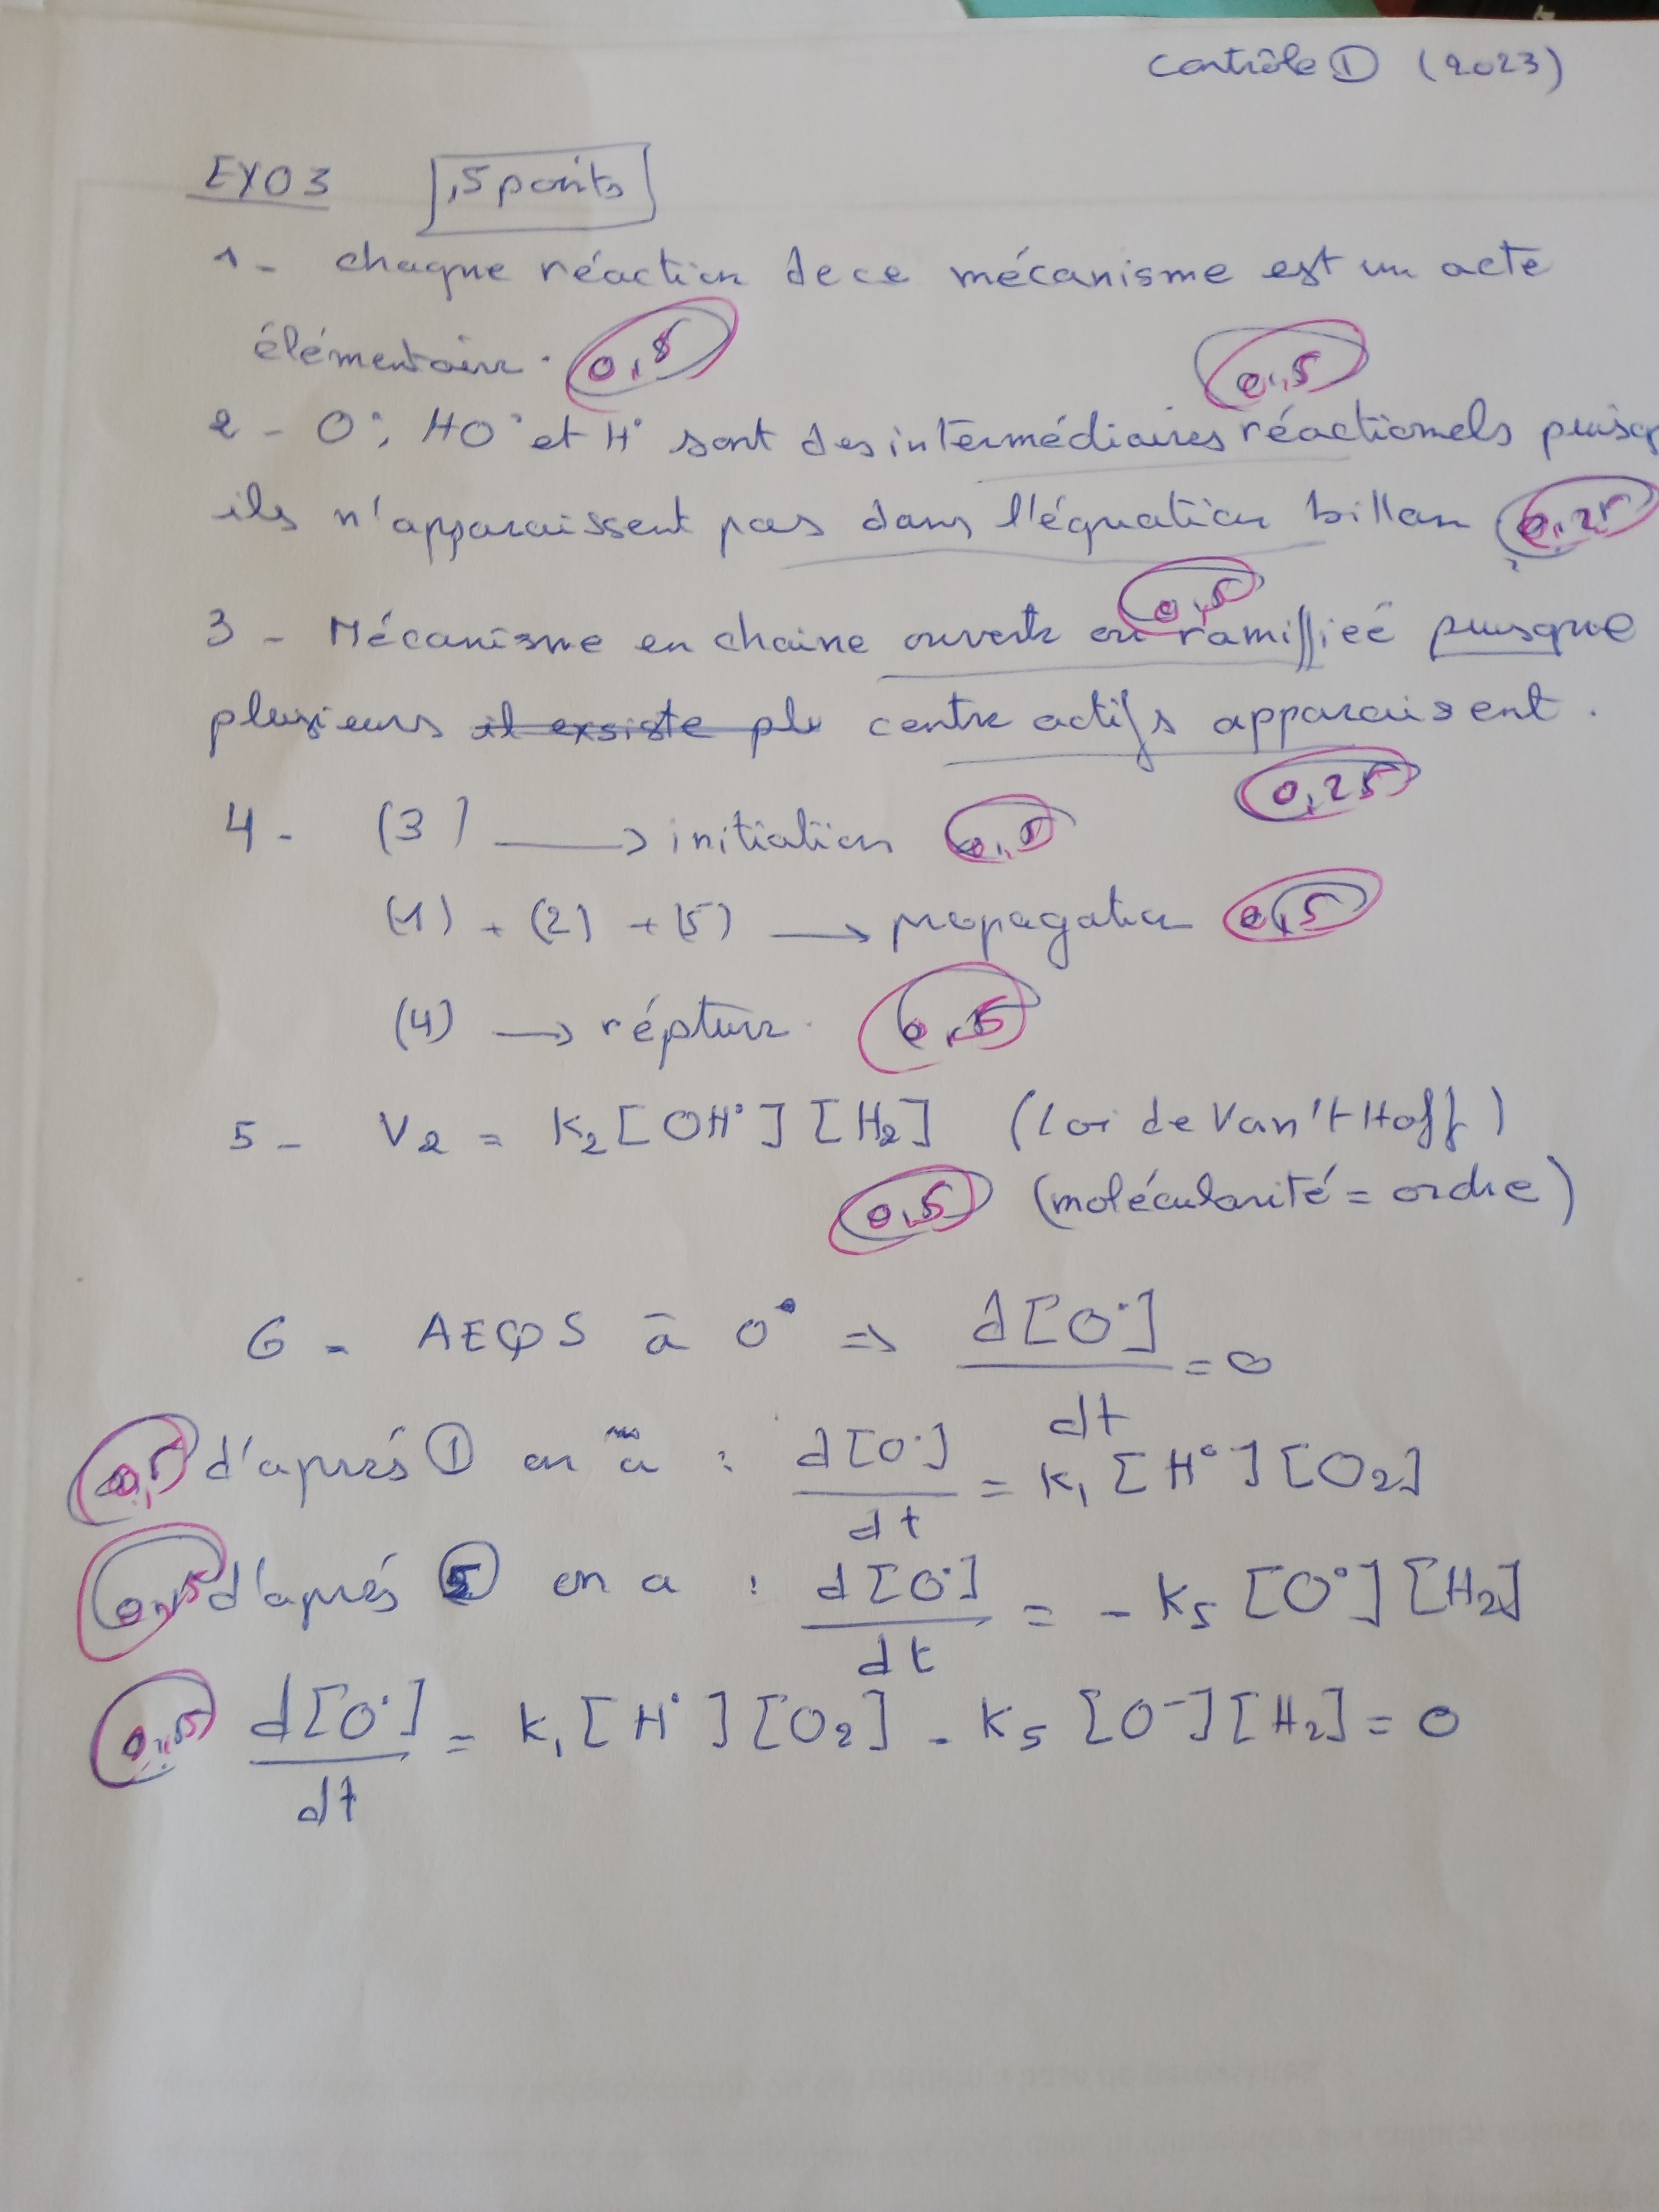 contrôle ① (2023)
EXO3 ,5 points
1 - chaque réaction de ce mécanisme est un acte
élémentaire. 0,5
0,5
2 - O°, HO° et H° sont des intermédiaires réactionels puisq
ils n'apparaissent pas dans l'équation billan 0,25
0,5
3 - Mécanisme en chaine ouverte ou ramifiée puisque
plusieurs il exsiste plu centre actifs apparaissent.
0,25
4 - (3) → initiation 0,5
(1) + (2) + (5) → propagation 0,5
(4) → répture. 0,5
5 - V2 = K2 [OH°] [H2] (Loi de Van't Hoff)
0,5 (molécularité = ordre)
6 - AEQS à O° => d[O°]/dt = 0
0,5 d'aprés ① on a : d[O°]/dt = K1 [H°] [O2]
0,5 d'aprés ⑤ on a : d[O°]/dt = - K5 [O°] [H2]
0,5 d[O°]/dt = K1 [H°] [O2] - K5 [O-] [H2] = 0